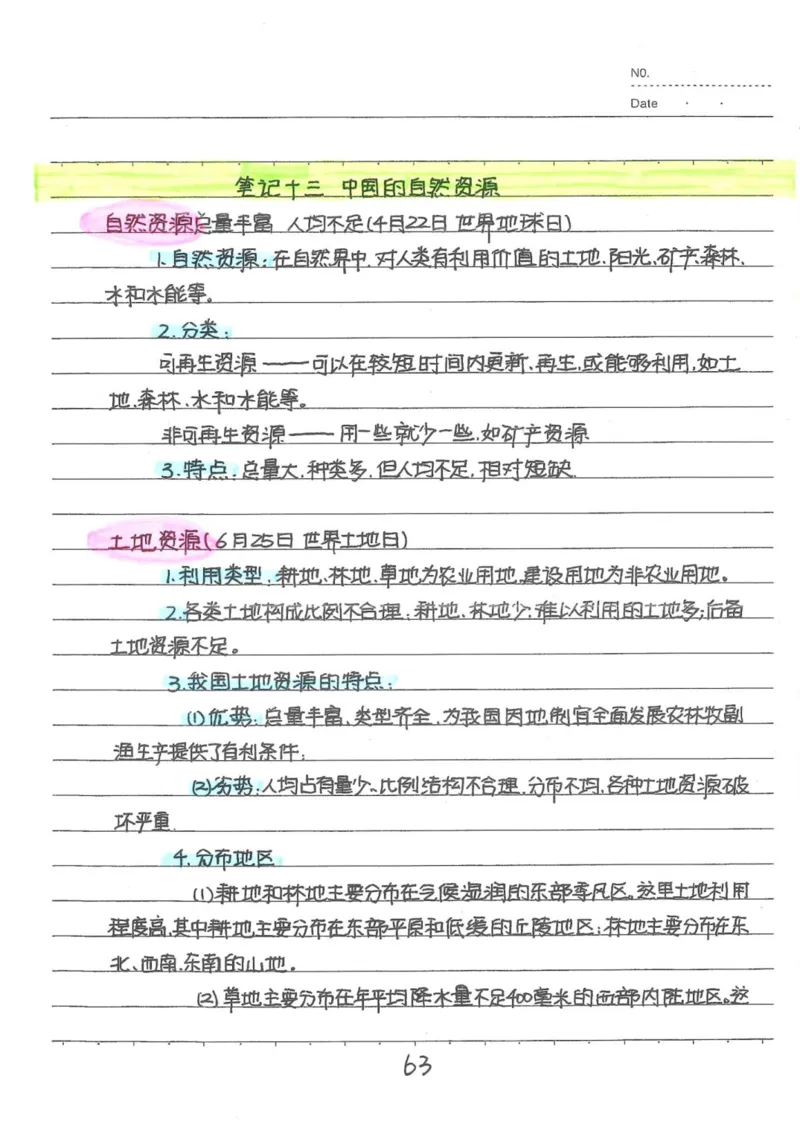 NO.
Date
笔记十三 中国的自然资源
自然资源总量丰富 人均不足(4月22日 世界地球日)
1.自然资源:在自然界中,对人类有利用价值的土地、阳光、矿产、森林、
水和水能等。
2.分类:
可再生资源——可以在较短时间内更新、再生,或能够利用,如土
地、森林、水和水能等。
非可再生资源——用一些就少一些,如矿产资源
3.特点:总量大,种类多,但人均不足,相对短缺.
土地资源(6月25日 世界土地日)
1.利用类型:耕地、林地、草地为农业用地,建设用地为非农业用地。
2.各类土地构成比例不合理:耕地、林地少;难以利用的土地多;后备
土地资源不足。
3.我国土地资源的特点:
(1)优势:总量丰富、类型齐全,为我国因地制宜全面发展农林牧副
渔生产提供了有利条件;
(2)劣势:人均占有量少、比例结构不合理,分布不均,各种土地资源破
坏严重.
4.分布地区
(1)耕地和林地主要分布在气候湿润的东部季风区。这里土地利用
程度高,其中耕地主要分布在东部平原和低缓的丘陵地区;林地主要分布在东
北、西南、东南的山地。
(2)草地主要分布在年平均降水量不足400毫米的西部内陆地区。这
63